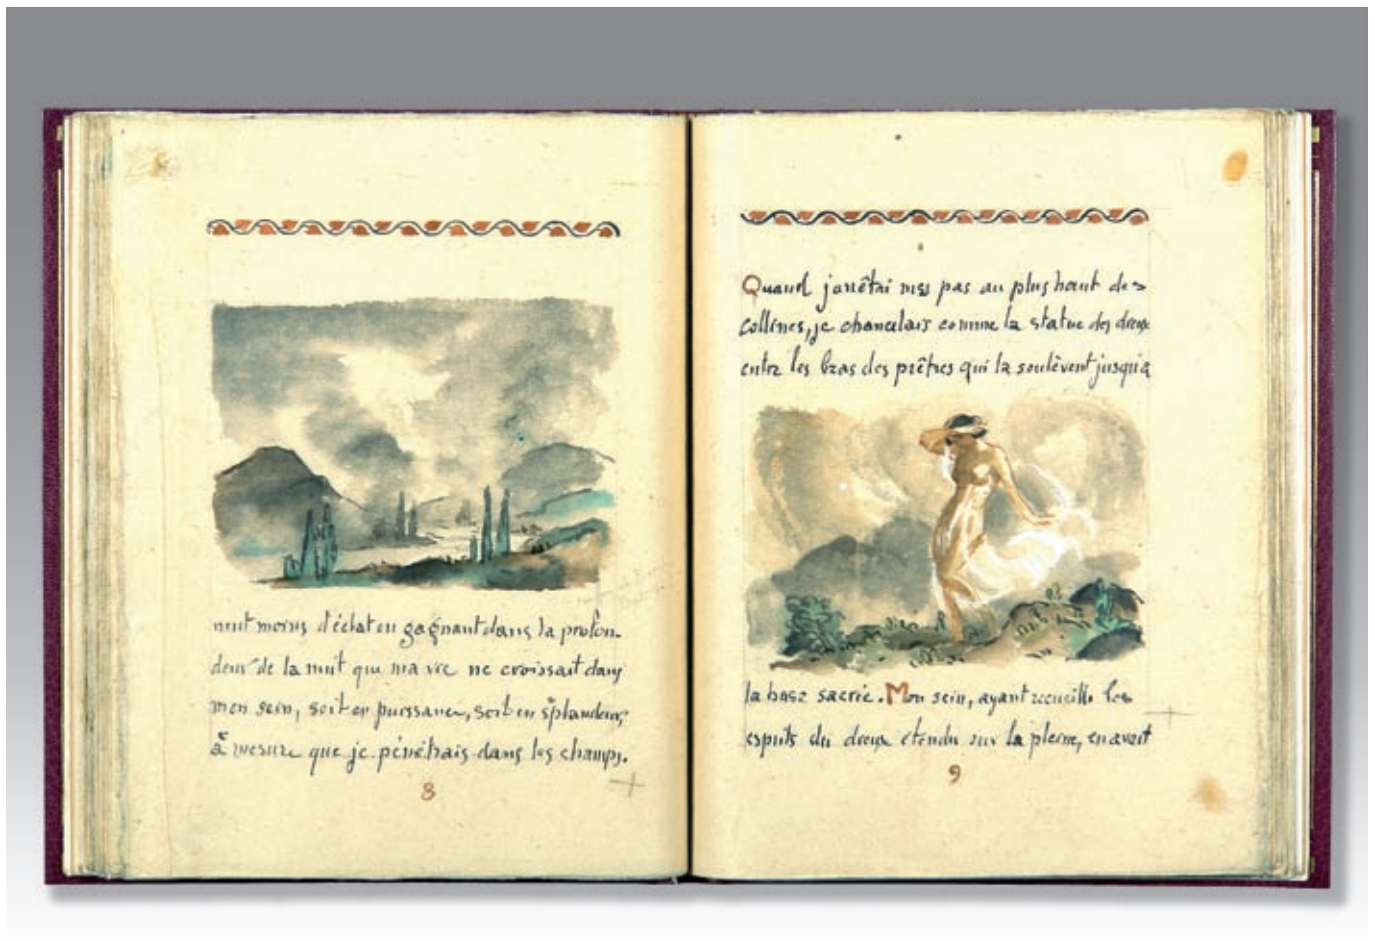 nent moins d'éclat en gagnant dans la profon-
deur de la nuit qui ma vie ne croissait dans
mon sein, soit en puissance, soit en splendeur,
à mesure que je pénétrais dans les champs.
8
Quand j'arrêtai mes pas au plus haut des
collines, je chancelais comme la statue des dieux
entre les bras des prêtres qui la soulèvent jusqu'à
la base sacrée. Mon sein, ayant recueilli les
esprits du dieux étendu sur la pleine, en avait
9